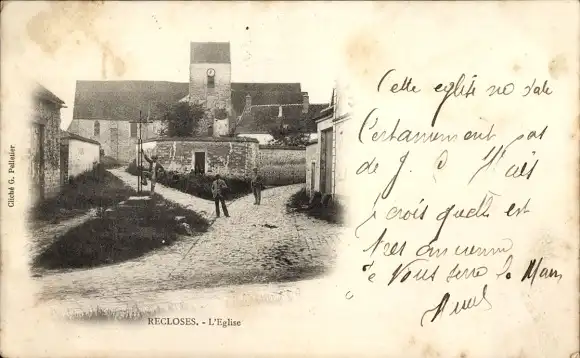 Cliché G. Pelletier
RECLOSES. - L'Eglise
Cette église ne date
Certainement pas
de J. C Mais
je crois quelle est
très ancienne
Je vous serre la Main